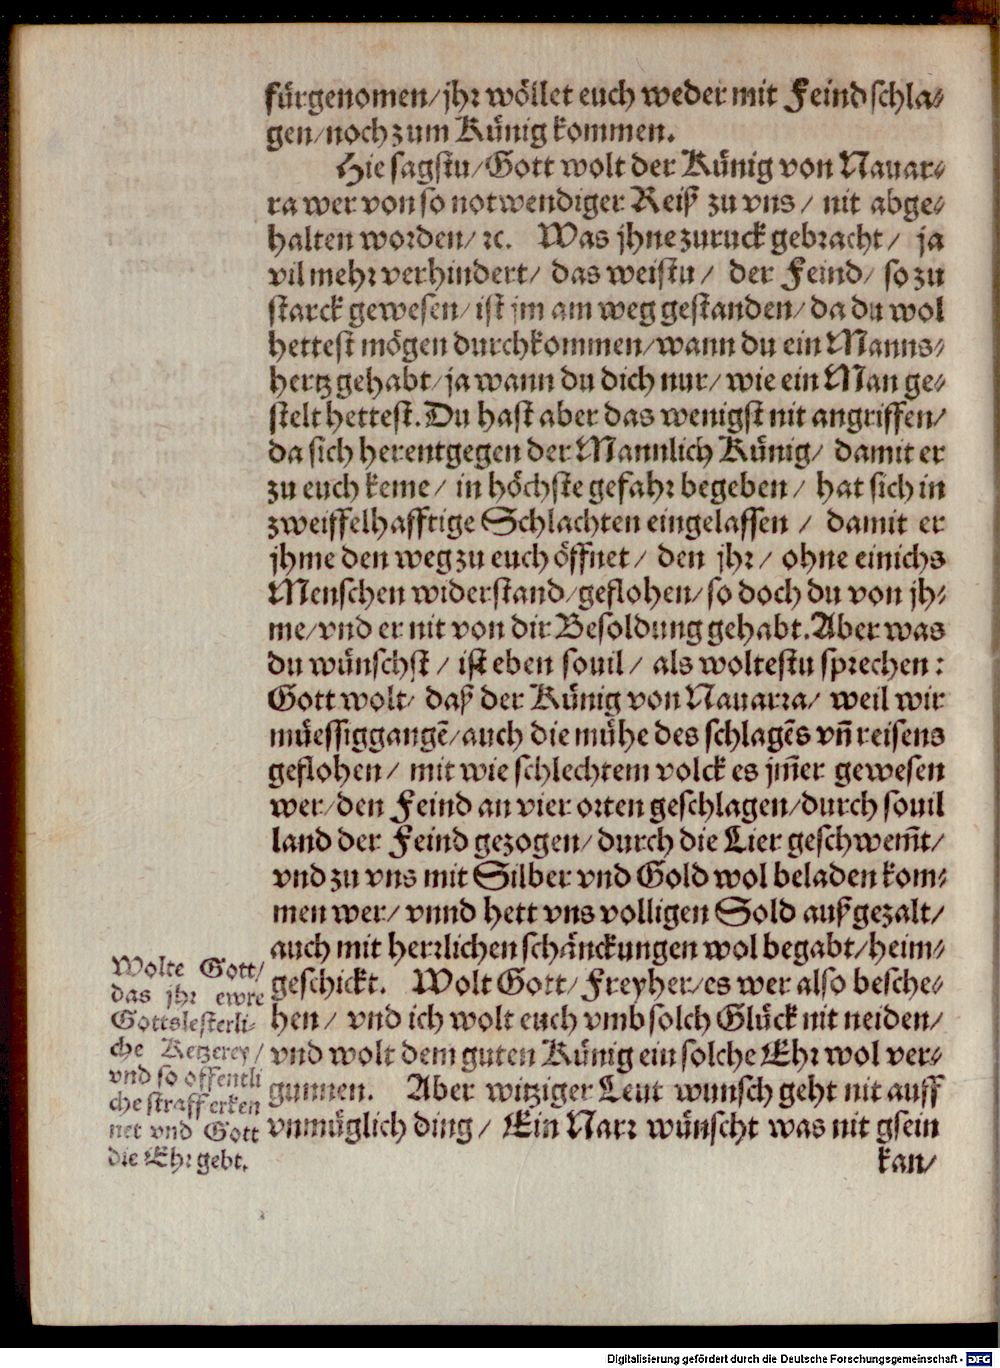 fürgenomen/jhr wöllet euch weder mit Feind schla⸗
gen/noch zum Künig kommen.
Hie sagstu/Gott wolt der Künig von Nauar⸗
ra wer von so notwendiger Reiß zu vns / nit abge⸗
halten worden/ ꝛc. Was jhne zuruck gebracht/ ja
vil mehr verhindert/ das weistu / der Feind/ so zu
starck gewesen/ ist jm am weg gestanden/ da du wol
hettest mögen durchkommen/wann du ein Manns⸗
hertz gehabt/ ja wann du dich nur/ wie ein Man ge⸗
stelt hettest. Du hast aber das wenigst nit angriffen/
da sich herentgegen der Mannlich Künig/ damit er
zu euch keme / in höchste gefahr begeben / hat sich in
zweiffelhafftige Schlachten eingelassen / damit er
jhme den weg zu euch öffnet / den jhr / ohne einichs
Menschen widerstand/geflohen/ so doch du von jh⸗
me/vnd er nit von dir Besoldung gehabt. Aber was
du wünschst / ist eben souil / als woltestu sprechen:
Gott wolt/ daß der Künig von Nauarra/ weil wir
müessiggangẽ/auch die mühe des schlagẽs vñ reisens
geflohen / mit wie schlechtem volck es jm̃er gewesen
wer/den Feind an vier orten geschlagen/durch souil
land der Feind gezogen/ durch die Lier geschwem̃t/
vnd zu vns mit Silber vnd Gold wol beladen kom⸗
men wer/ vnnd hett vns volligen Sold außgezalt/
auch mit herrlichen schänckungen wol begabt/heim⸗
geschickt. Wolt Gott/ Freyher/es wer also besche⸗
hen / vnd ich wolt euch vmb solch Glück nit neiden/
vnd wolt dem guten Künig ein solche Ehr wol ver⸗
gunnen. Aber witziger Leut wunsch geht nit auff
vnmüglich ding / Ein Narr wünscht was nit gsein
kan/
Wolte Gott/
das jhr ewre
Gottslesterli⸗
che Ketzerey/
vnd so offentli
che straff erken
net vnd Gott
die Ehr gebt.
Digitalisierung gefördert durch die Deutsche Forschungsgemeinschaft - DFG